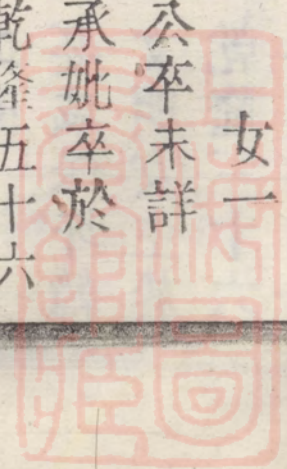 女一
公卒未詳
承妣卒於
乾隆五十六